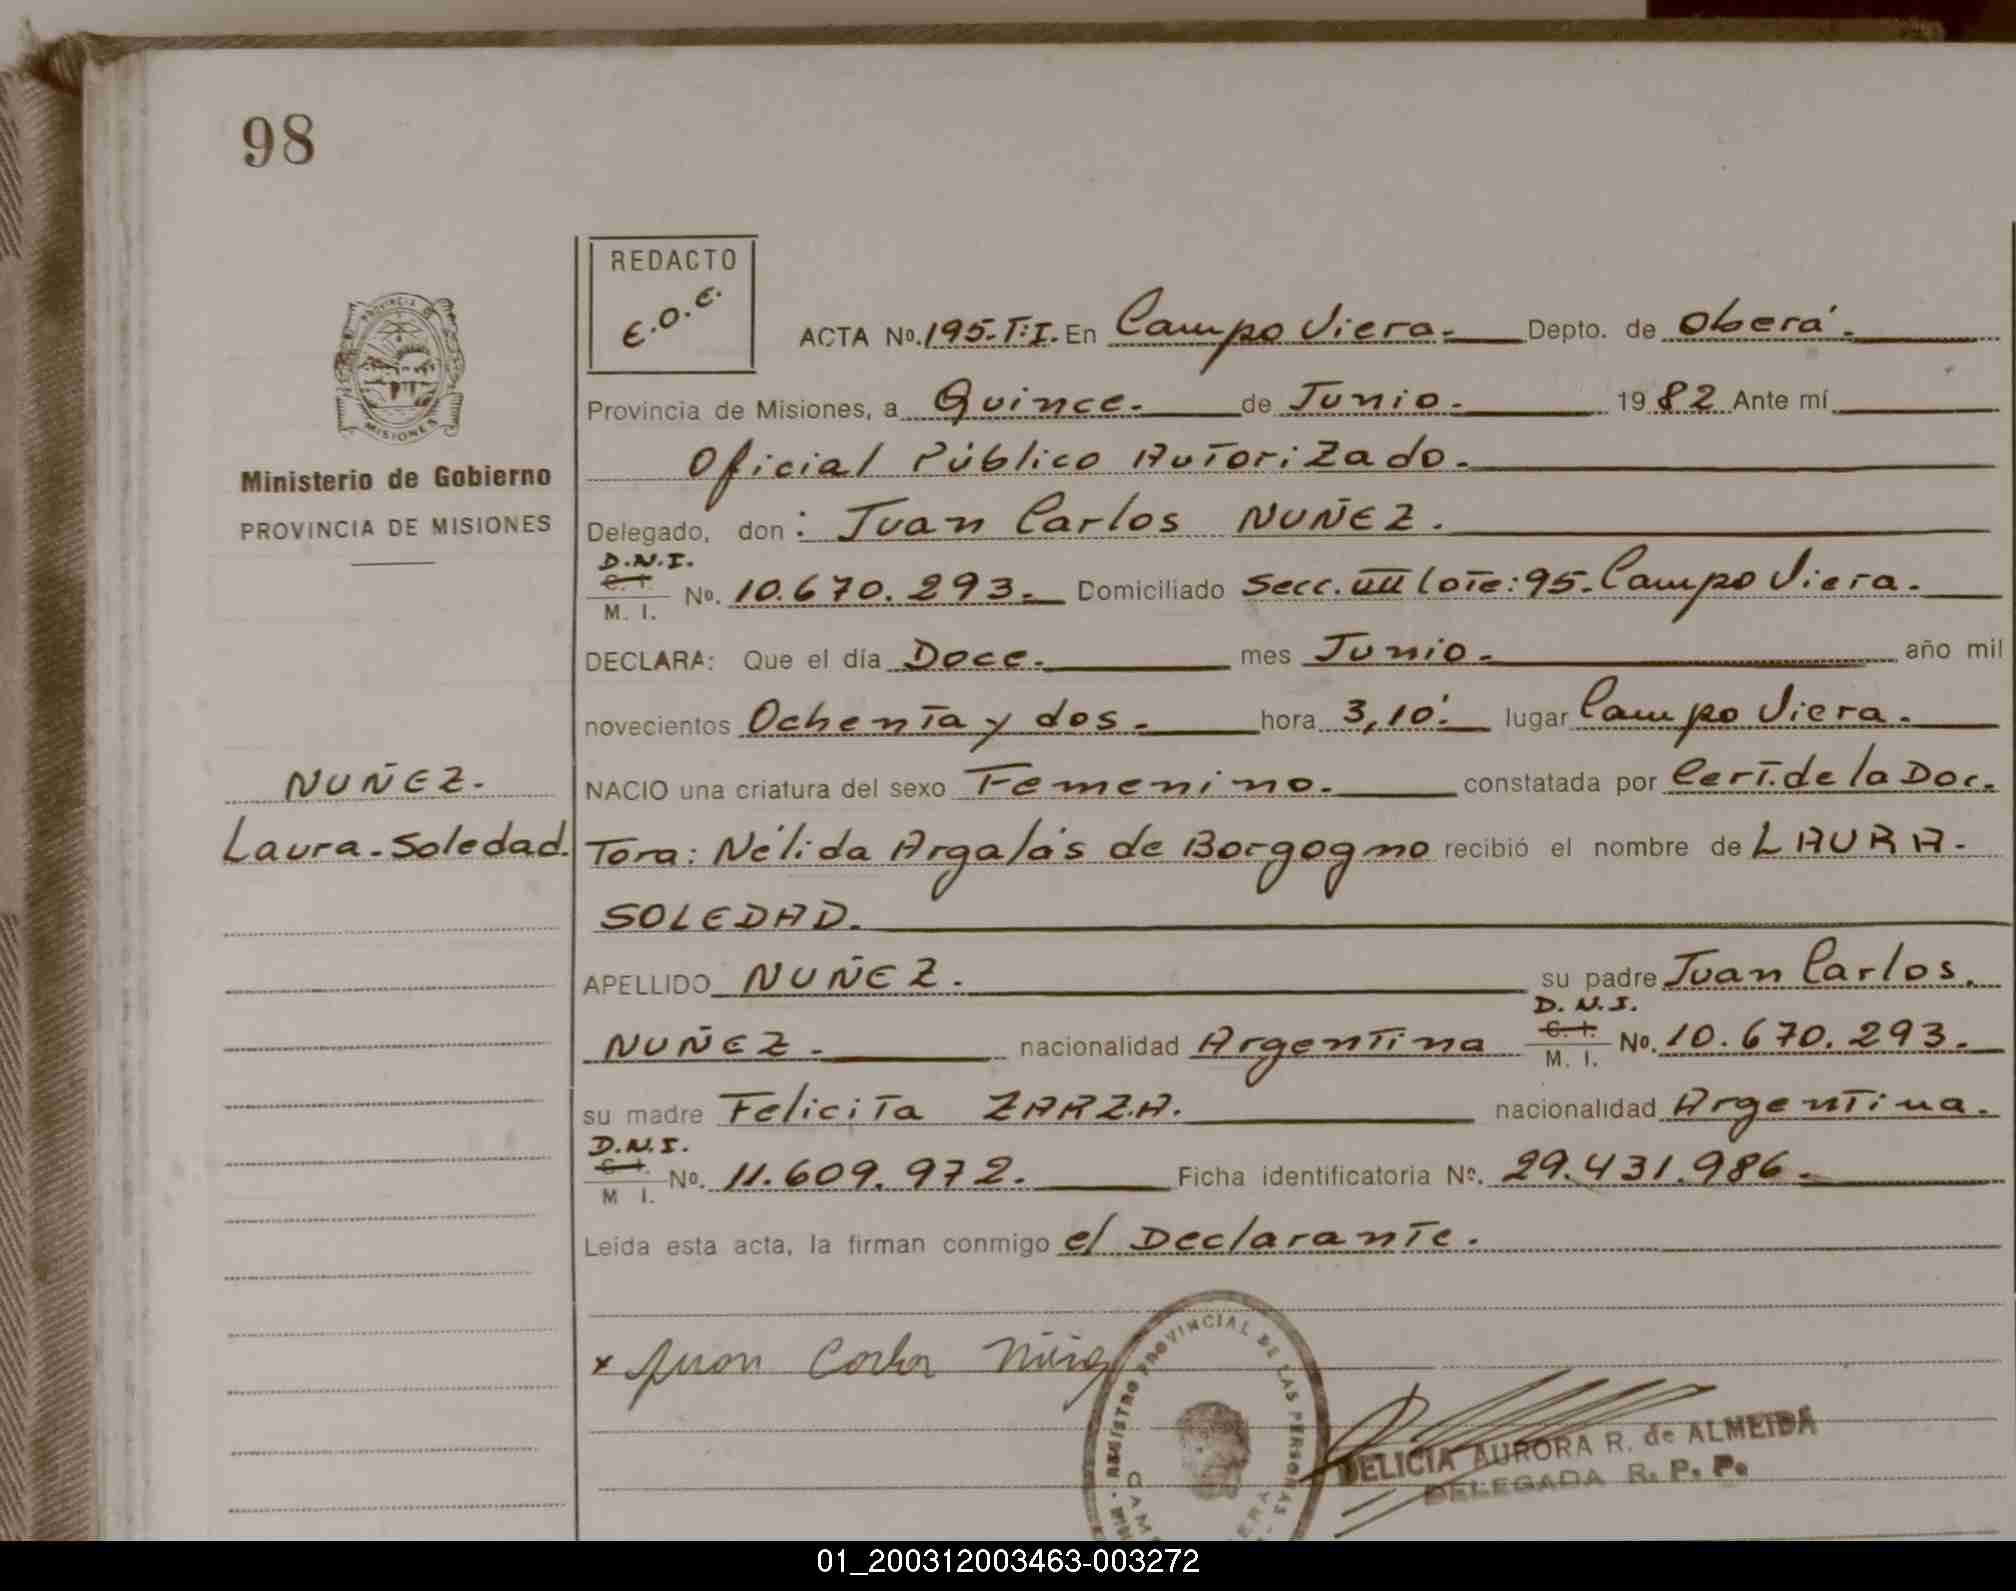 98
REDACTO
E.O.E.
ACTA No. 195-T:I. En Campo Viera.- Depto. de Oberá.-
Provincia de Misiones, a Quince.- de Junio.- 1982 Ante mí
Oficial Público Autorizado.-
PROVINCIA DE
MISIONES
Ministerio de Gobierno
PROVINCIA DE MISIONES
Delegado, don: Juan Carlos NUÑEZ.
D.N.I.
C. I.
M. I. No. 10.670.293.- Domiciliado Secc. VIII Lote: 95- Campo Viera.
DECLARA: Que el día Doce.- mes Junio.- año mil
novecientos Ochenta y dos.- hora 3,10' lugar Campo Viera.-
NUÑEZ.
NACIO una criatura del sexo Femenino.- constatada por Cert. de la Doc.
Laura-Soledad.
Tora: Nélida Argalás de Borgogno recibió el nombre de LAURA-
SOLEDAD.
APELLIDO NUÑEZ. su padre Juan Carlos.
NUÑEZ.- nacionalidad Argentina D.N.I.
C. I.
M. I. No. 10.670.293.-
su madre Felicita ZARZA. nacionalidad Argentina.
D.N.I.
C. I.
M I. No. 11.609.972. Ficha identificatoria No. 29.431.986.-
Leída esta acta, la firman conmigo el Declarante.
x Juan Carlos Nuñez
REGISTRO PROVINCIAL DE LAS PERSONAS
DELICIA AURORA R. de ALMEIDA
DELEGADA R. P. P.
01_200312003463-003272